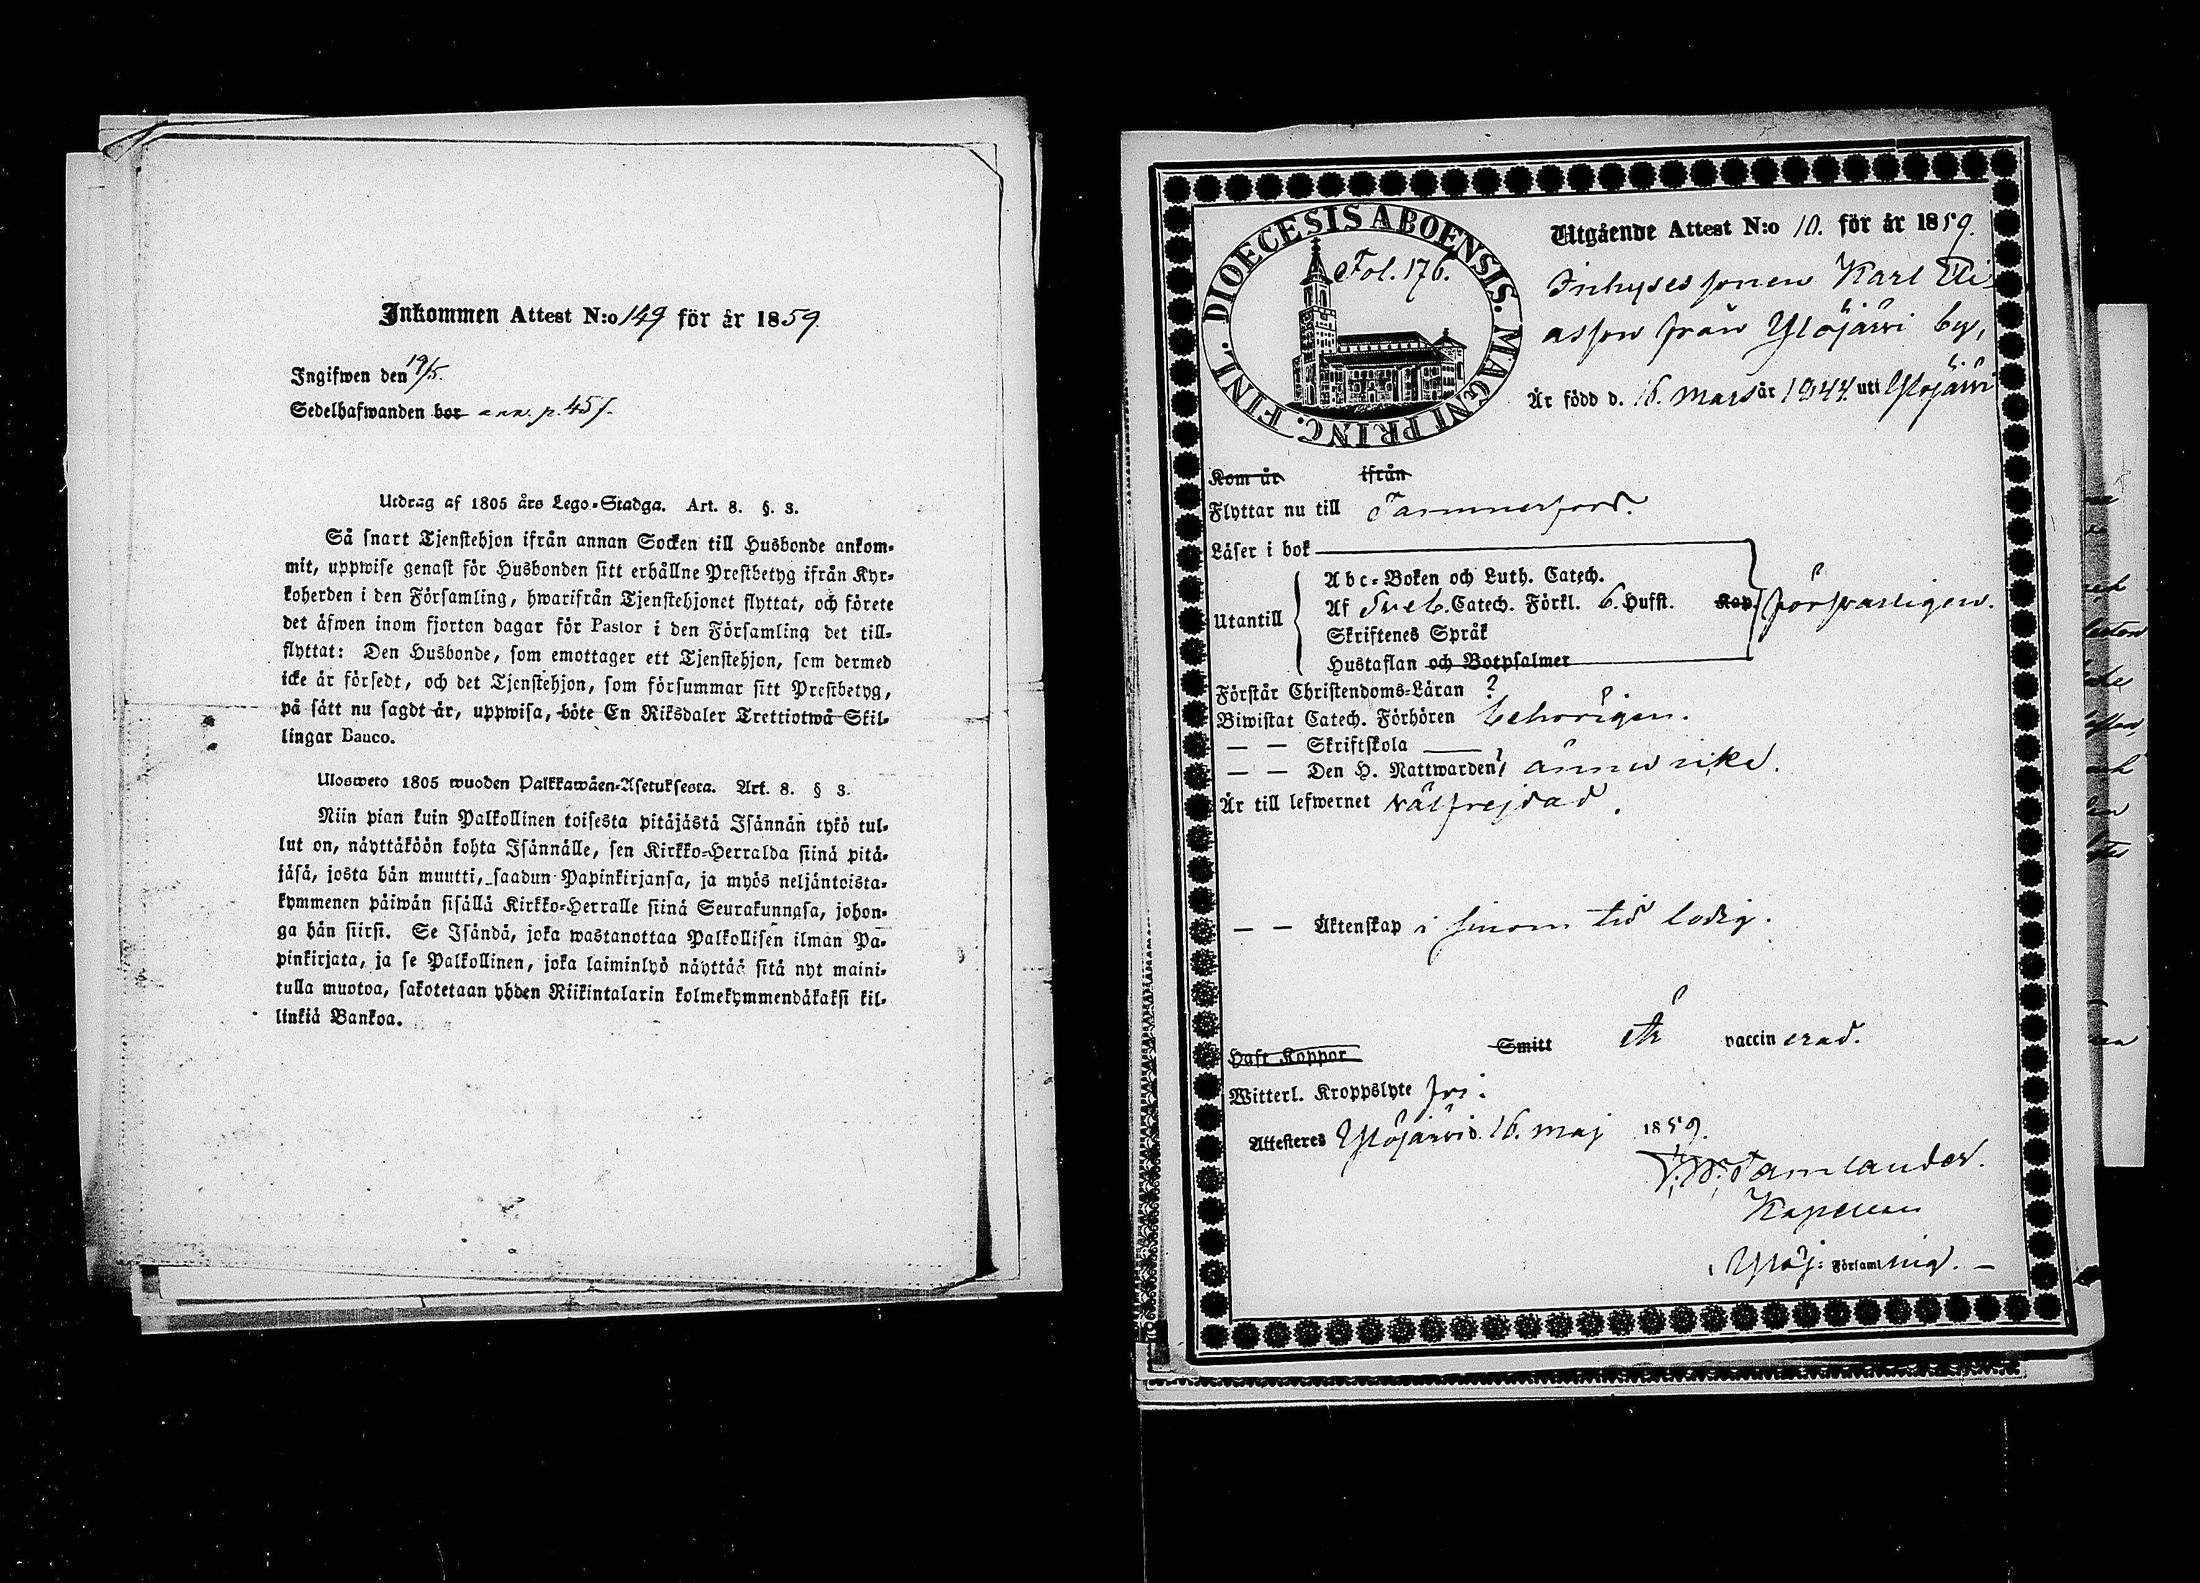 Inkommen Attest N:o 149 för år 1859.
Ingifwen den 19/5.
Sedelhafwanden bor ann. p. 457.
Utdrag af 1805 års Lego-Stadga. Art. 8. §. 3.
Så snart Tjenstehjon ifrån annan Socken till Husbonde ankom-
mit, uppwise genast för Husbonden sitt erhållne Prestbetyg ifrån Kyr-
koherden i den Församling, hwarifrån Tjenstehjonet flyttat, och förete
det äfwen inom fjorton dagar för Pastor i den Församling det till-
flyttat: Den Husbonde, som emottager ett Tjenstehjon, som dermed
icke är försedt, och det Tjenstehjon, som försummar sitt Prestbetyg,
på sätt nu sagdt är, uppwisa, böte En Riksdaler Trettiotwå Skil-
lingar Banco.
Ulosweto 1805 wuoden Palkkawäen-Asetuksesta. Art. 8. § 3.
Niin pian kuin Palkollinen toisesta pitäjästä Isännän tykö tul-
lut on, näyttäköön kohta Isännälle, sen Kirkko-Herralda siinä pitä-
jäsä, josta hän muutti, saadun Papinkirjansa, ja myös neljäntoista-
kymmenen päiwän sisällä Kirkko-Herralle siinä Seurakunnasa, johon-
ga hän siirsi. Se Isändä, joka wastanottaa Palkollisen ilman Pa-
pinkirjata, ja se Palkollinen, joka laiminlyö näyttää sitä nyt maini-
tulla muotoa, sakotetaan yhden Riikintalarin kolmekymmendäkaksi kil-
linkiä Bankoa.
DIOECESIS ABOENSIS. MAGNI PRINC. FINL.
Fol. 176.
Utgående Attest N:o 10. för år 1859.
Inhyses sonen Karl Eli
asson från Ylöjärvi by,
Är född d. 16. Mars år 1844. uti Ylöjärvi
Kom år ifrån
Flyttar nu till Tammerfors.
Läser i bok
Utantill
Abc-Boken och Luth. Catech.
Af Sveb. Catech. Förkl. 6. Hufst. Kap. försvarligen.
Skriftenes Språk
Hustaflan och Botpsalmer
Förstår Christendoms-Läran ?
Biwistat Catech. Förhören behörigen.
— — Skriftskola
— — Den H. Nattwarden, ännu icke.
Är till lefwernet välfrejdad.
— — Äktenskap i sinom tid ledig.
Haft Koppor Smitt är vaccinerad.
Witterl. Kroppslyte fri.
Attesteres Ylöjärvi d. 16. maj 1859.
Tamlander.
Kapellan
i Ylöj: Församling. —